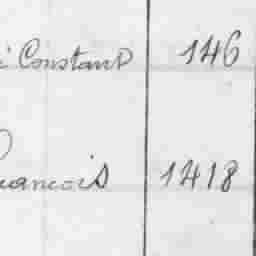 i Constant 146
rancois 1418